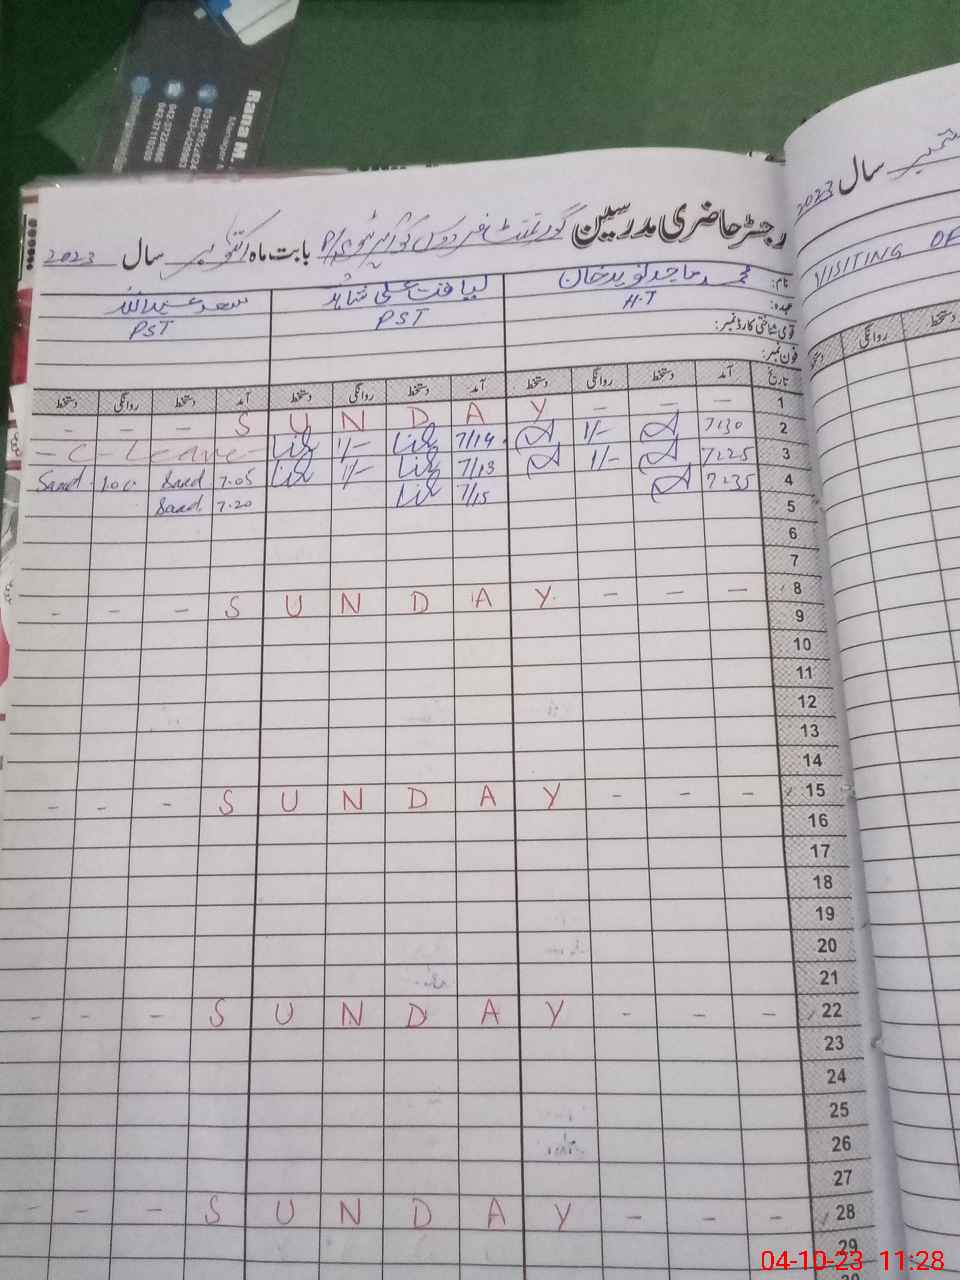 Rana M.
سال
2023
VISITING
رجسٹر حاضری مدرسین گورنمنٹ فردوس بابت ماہ اکتوبر سال 2023
نام: محمد ماجد نوید خان لیاقت علی شاہد سعد عبداللہ
عہدہ: H.T PST PST
قومی شناختی کارڈ نمبر:
فون نمبر:
تاریخ آمد دستخط روانگی دستخط آمد دستخط روانگی دستخط آمد دستخط روانگی دستخط
روانگی دستخط
1 — — — S U N D A Y — — —
2 7:30 1/- 7/14 1/- - C - Leave -
3 7:25 1/- 7/13 1/- 7.05 Saad Saad
4 7:35 7/15 7.20 Saad
5
6
7
8 — — — S U N D A Y — — —
9
10
11
12
13
14
15 — — — S U N D A Y — — —
16
17
18
19
20
21
22 — — — S U N D A Y — — —
23
24
25
26
27
28 — — — S U N D A Y — — —
29
04-10-23 11:28